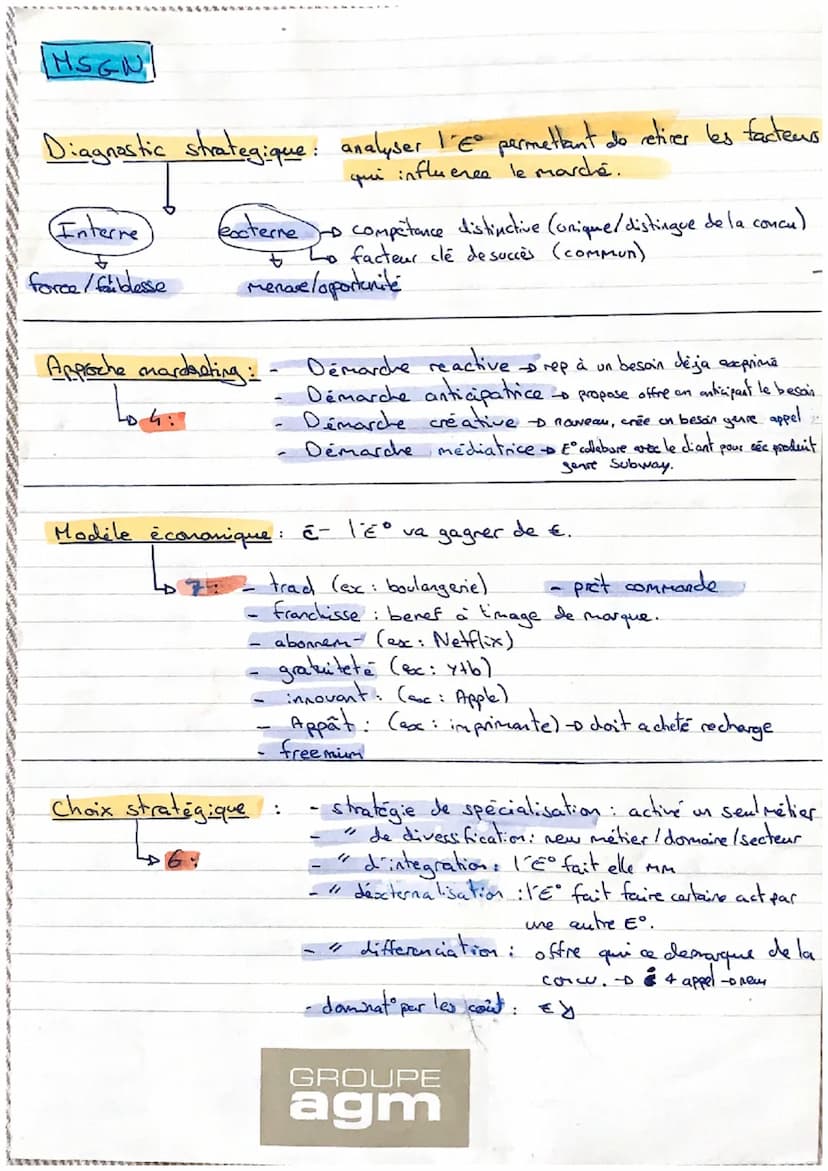 MSGN
Diagnostic strategique : analyser l'E° permettant de retirer les facteurs
qui influence le marché.
Interne
externe → compétance distinctive (unique/distingue de la concu)
↳ facteur clé de succès (commun)
force/faiblesse
menase/oportunité
Approche mardketing : - Démarche reactive → rep à un besoin déja exprimé
- Démarche anticipatrice → propose offre en anticipant le besoin
↳ 4 :
- Démarche créative → nouveau, crée un besoin genre appel
- Démarche médiatrice → E° collabore avec le client pour céc produit
genre Subway.
Modéle économique : c- l'E° va gagner de €.
↳ 7 : - trad (ex : boulangerie) - prêt commande
- franchisse : benef à l'image de marque.
- abonnem- (ex : Netflix)
- gratuiteté (ex : Ytb)
- innovant : (ex : Apple)
- Appât : (ex : imprimante) → doit acheté recharge
- freemium
Choix stratégique : - stratégie de spécialisation : activé un seul métier
- " de diverssfication : new métier/domaine/secteur
↳ 6 :
- " d'integration : l'E° fait elle mm
- " déxternalisation : l'E° fait faire certaine act par
une autre E°.
- " differenciation : offre qui ce demarque de la
concu. → 4 appel → new
- dominat° par les coût : € ↘
GROUPE
agm